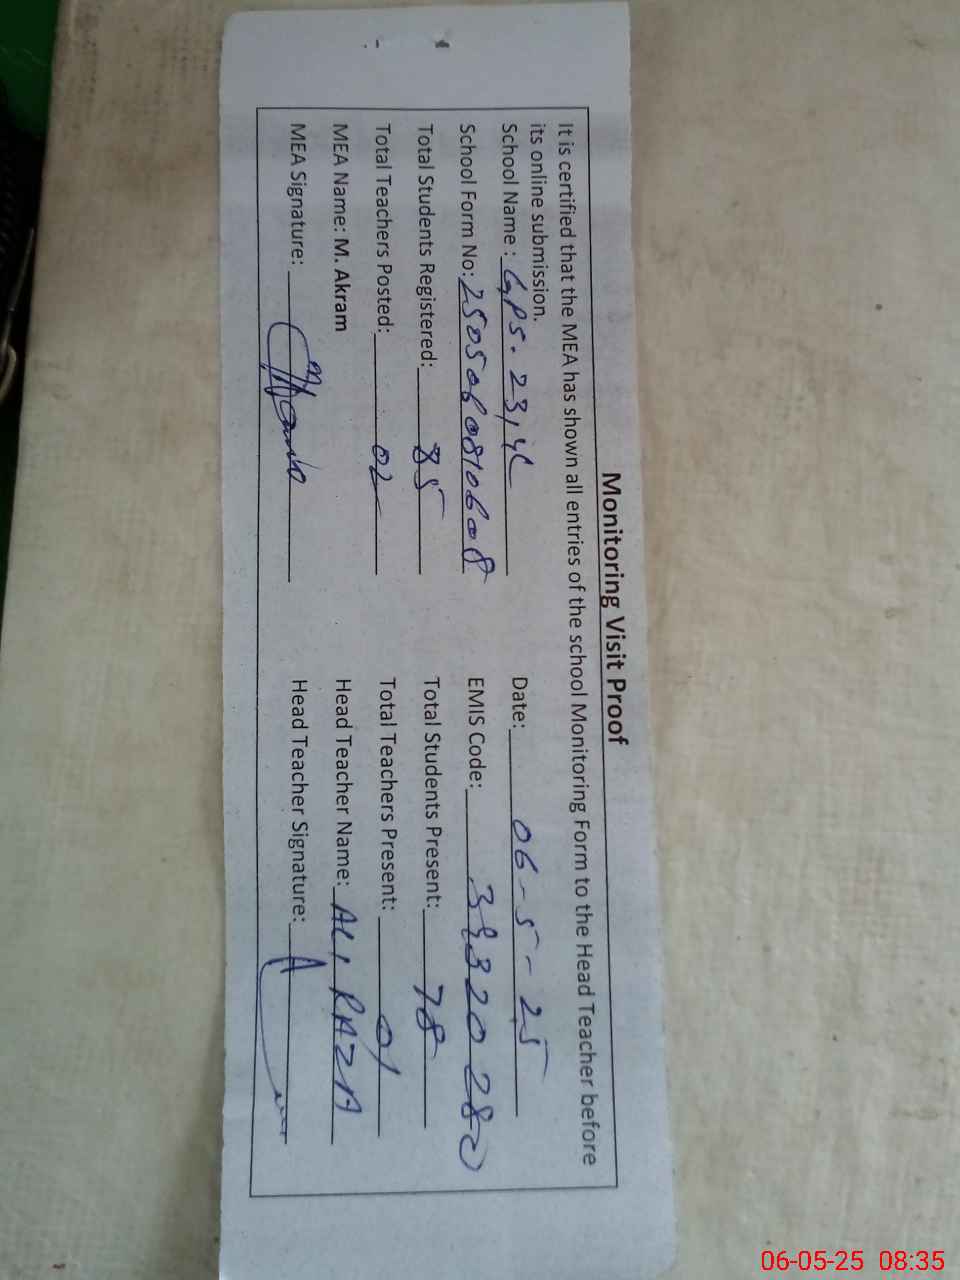 Monitoring Visit Proof
It is certified that the MEA has shown all entries of the school Monitoring Form to the Head Teacher before
its online submission.
School Name : GPS. 23/4L Date: 06-5-25
School Form No: 2505060810608 EMIS Code: 39320280
Total Students Registered: 85 Total Students Present: 78
Total Teachers Posted: 02 Total Teachers Present: 01
MEA Name: M. Akram Head Teacher Name: ALI RAZA
MEA Signature: Head Teacher Signature:
06-05-25 08:35